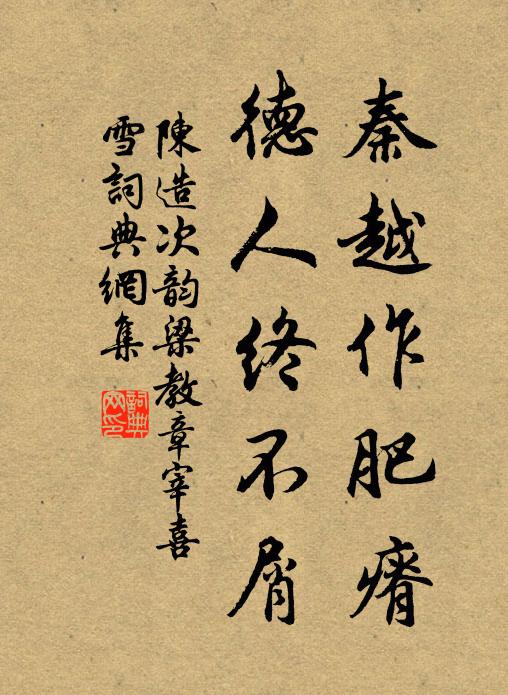 秦越作肥瘠
德人終不屑
陳造次韵梁教章宰喜
雪詞典網集
詞典網印